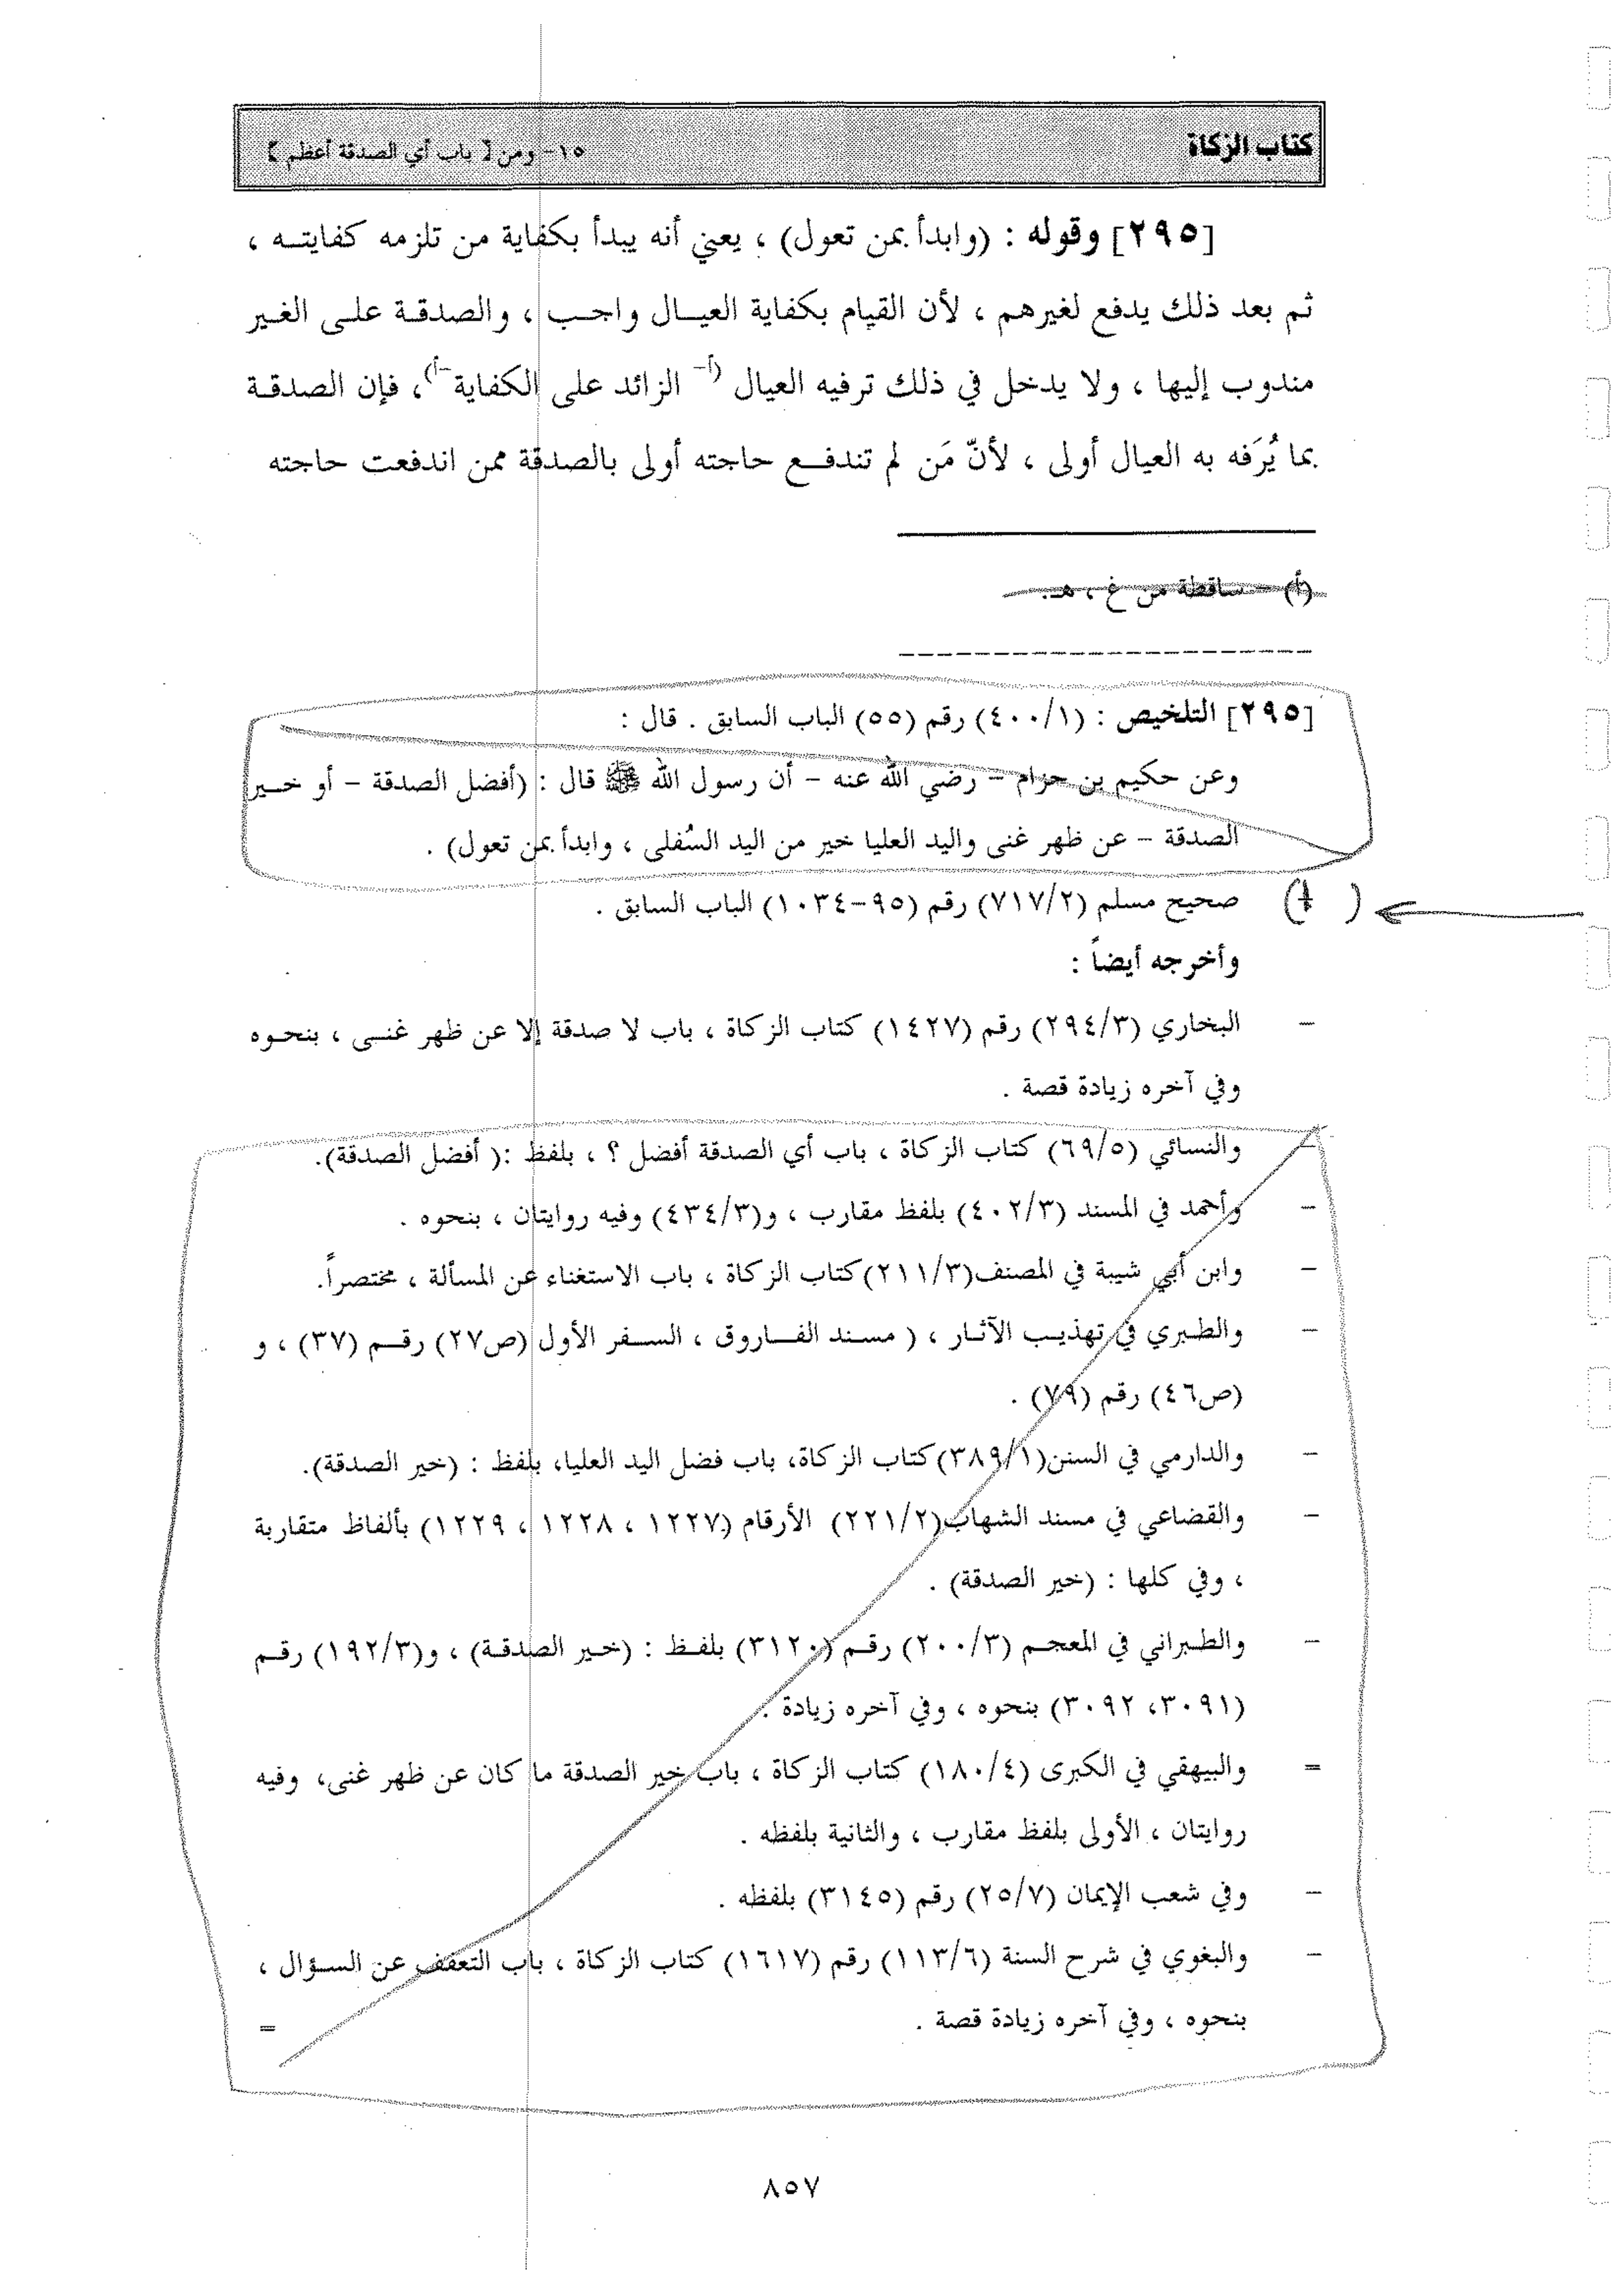 كتاب الزكاة
١٥- ومن [ باب أي الصدقة أعظم ]
[٢٩٥] وقوله : (وابدأ بمن تعول) ، يعني أنه يبدأ بكفاية من تلزمه كفايتـه ،
ثم بعد ذلك يدفع لغيرهم ، لأن القيام بكفاية العيـال واجـب ، والصدقـة علـى الغـير
مندوب إليها ، ولا يدخل في ذلك ترفيه العيال (أ- الزائد على الكفاية -أ)، فإن الصدقـة
بما يُرَفه به العيال أولى ، لأنّ مَن لم تندفـع حاجته أولى بالصدقة ممن اندفعت حاجته
(أ) - ساقطة من غ ، هـ.
[٢٩٥] التلخيص : (٤٠٠/١) رقم (٥٥) الباب السابق . قال :
وعن حكيم بن حزام - رضي الله عنه - أن رسول الله ﷺ قال : (أفضل الصدقة - أو خـير
الصدقة - عن ظهر غنى واليد العليا خير من اليد السُفلى ، وابدأ بمن تعول) .
صحيح مسلم (٧١٧/٢) رقم (٩٥-١٠٣٤) الباب السابق .
وأخرجه أيضاً :
- البخاري (٢٩٤/٣) رقم (١٤٢٧) كتاب الزكاة ، باب لا صدقة إلا عن ظهر غنـى ، بنحـوه
وفي آخره زيادة قصة .
- والنسائي (٦٩/٥) كتاب الزكاة ، باب أي الصدقة أفضل ؟ ، بلفظ :( أفضل الصدقة).
- وأحمد في المسند (٤٠٢/٣) بلفظ مقارب ، و(٤٣٤/٣) وفيه روايتان ، بنحوه .
- وابن أبي شيبة في المصنف(٢١١/٣)كتاب الزكاة ، باب الاستغناء عن المسألة ، مختصراً.
- والطـبري في تهذيـب الآثـار ، ( مسـند الفـاروق ، السـفر الأول (ص٢٧) رقـم (٣٧) ، و
(ص٤٦) رقم (٧٩) .
- والدارمي في السنن(٣٨٩/١)كتاب الزكاة، باب فضل اليد العليا، بلفظ : (خير الصدقة).
- والقضاعي في مسند الشهاب(٢٢١/٢) الأرقام (١٢٢٧ ، ١٢٢٨ ، ١٢٢٩) بألفاظ متقاربة
، وفي كلها : (خير الصدقة) .
- والطـبراني في المعجـم (٢٠٠/٣) رقـم (٣١٢٠) بلفـظ : (خـير الصدقـة) ، و(١٩٢/٣) رقـم
(٣٠٩١، ٣٠٩٢) بنحوه ، وفي آخره زيادة .
= والبيهقي في الكبرى (١٨٠/٤) كتاب الزكاة ، باب خير الصدقة ما كان عن ظهر غنى، وفيه
روايتان ، الأولى بلفظ مقارب ، والثانية بلفظه .
- وفي شعب الإيمان (٢٥/٧) رقم (٣١٤٥) بلفظه .
- والبغوي في شرح السنة (١١٣/٦) رقم (١٦١٧) كتاب الزكاة ، باب التعفف عن السـؤال ،
بنحوه ، وفي آخره زيادة قصة . =
٨٥٧